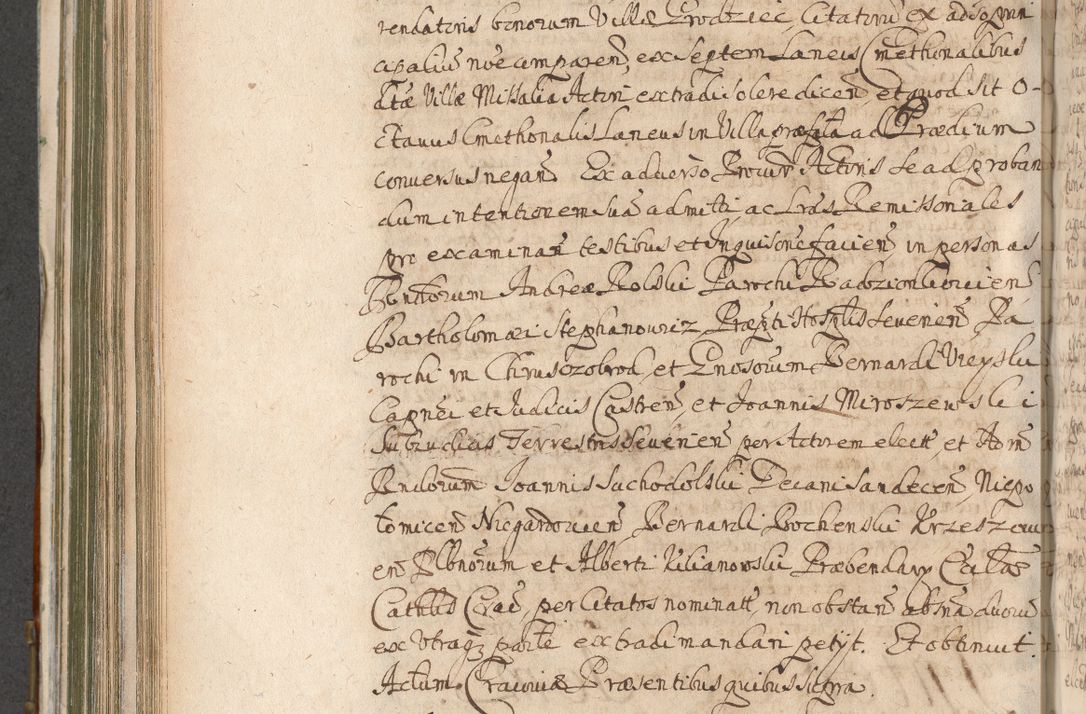 rendatoris bonorum Villæ Grodziec, Citatorū ex adso gnni
apalius noīe comparen̄, ex septem Laneis Cmethonalibus
dctæ Villæ Missalia Actori extradi solere dicen̄, et quod sit O-
ctauus Cmethonalis Laneus in Villa præfata ad Prædium
conuersus negan̄. Ex aduerso Procur̄ Actoris se ad proban
dum intentionem suā admitti, ac Lrās Remissoriales
pro examinan̄ testibus et Inquisione facien̄, in personas
Rndorum Andreæ Rolski Parochi Radzionkouien̄
Bartholomæi Stephanouicz Præpti Hosplis Seuerien̄ Pa
rochi in Chruszczobrod, et Gnosorum Bernardi Vieyski
Capnei et Judicis Castren̄, et Joannis Miroszewski
Subiudicis Terrestris Seuerien̄ per Actorem elect̄, et Adm̄
Rndorum Joannis Suchodolski Decani Sandecen̄, Niepo
łomicen̄ Niegardouien̄ Bernardi Bochenski Krzeszouic
en̄ Plbnorum et Alberti Kilianowski Præbendary Ecclæ
Cathlis Crac̄, per Citatos nominat̄, non obstan̄ absn̄a duorū
ex vtraq3 parte extradi mandari petijt. Et obtinuit.
Actum Cracouiæ Præsentibus quibus supra.